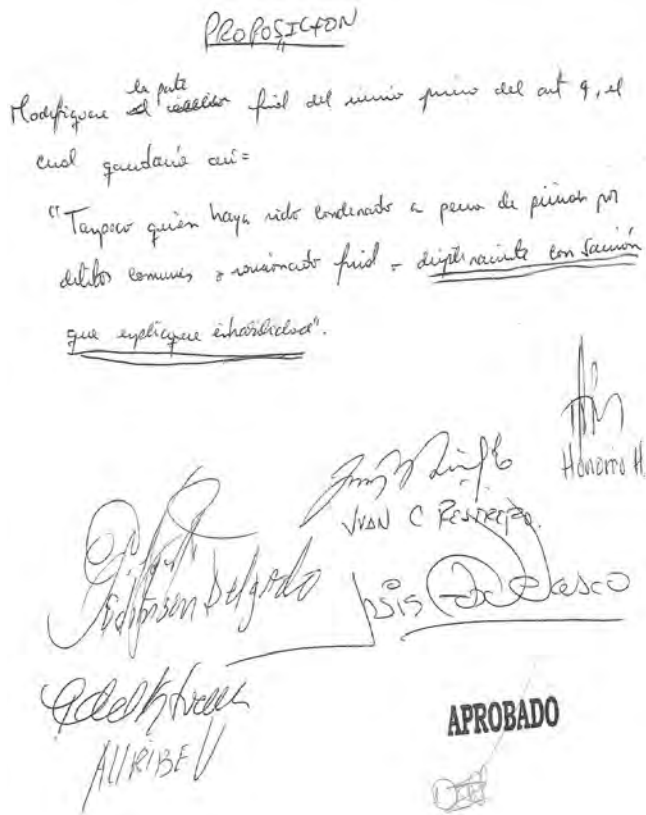 PROPOSICION
la parte
Modifiquese el final del inciso primero del art 9, el
cual quedaría así =
"Tampoco quien haya sido condenado a pena de prisión por
delitos comunes o sancionado fiscal o disciplinariamente con sanción
que explique inhabilidad".
Honorio H
JUAN C RESTREPO.
Edinson Delgado
Velasco
A URIBE V
APROBADO